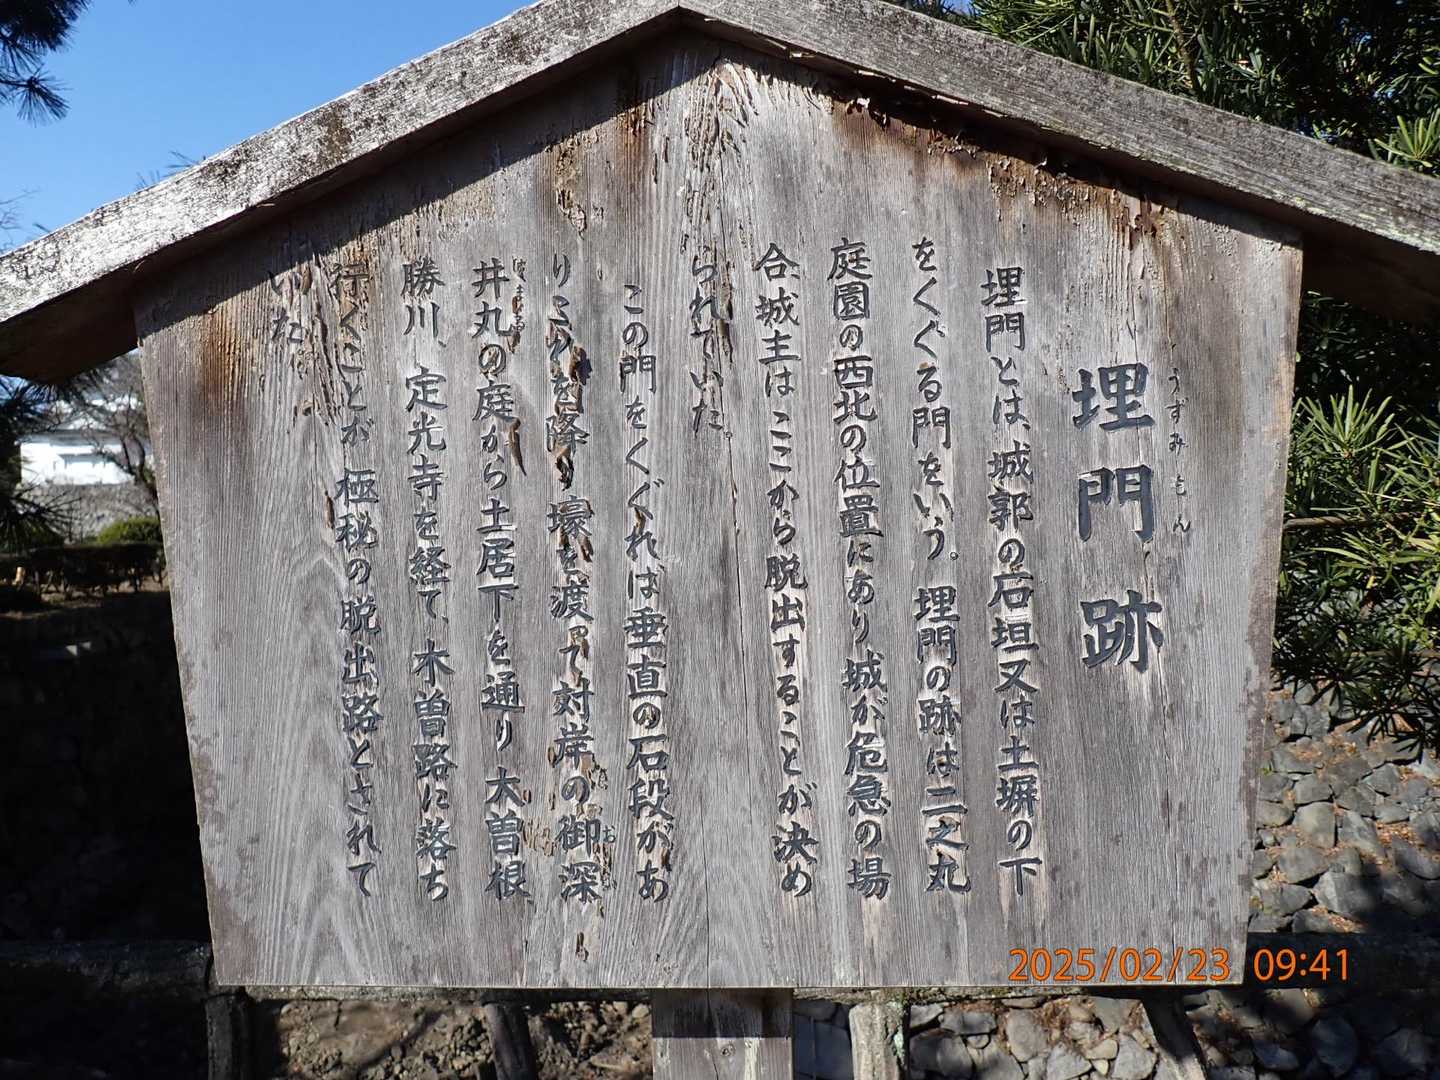 埋門跡
うずみもん
埋門とは、城郭の石垣又は土塀の下
をくぐる門をいう。埋門の跡は二之丸
庭園の西北の位置にあり城が危急の場
合、城主はここから脱出することが決め
られていた。
この門をくぐれば、垂直の石段があ
りこれを降り壕を渡って対岸の御深
井丸の庭から土居下を通り大曽根、
勝川、定光寺を経て、木曽路に落ち
行くことが極秘の脱出路とされて
いた。
2025/02/23 09:41